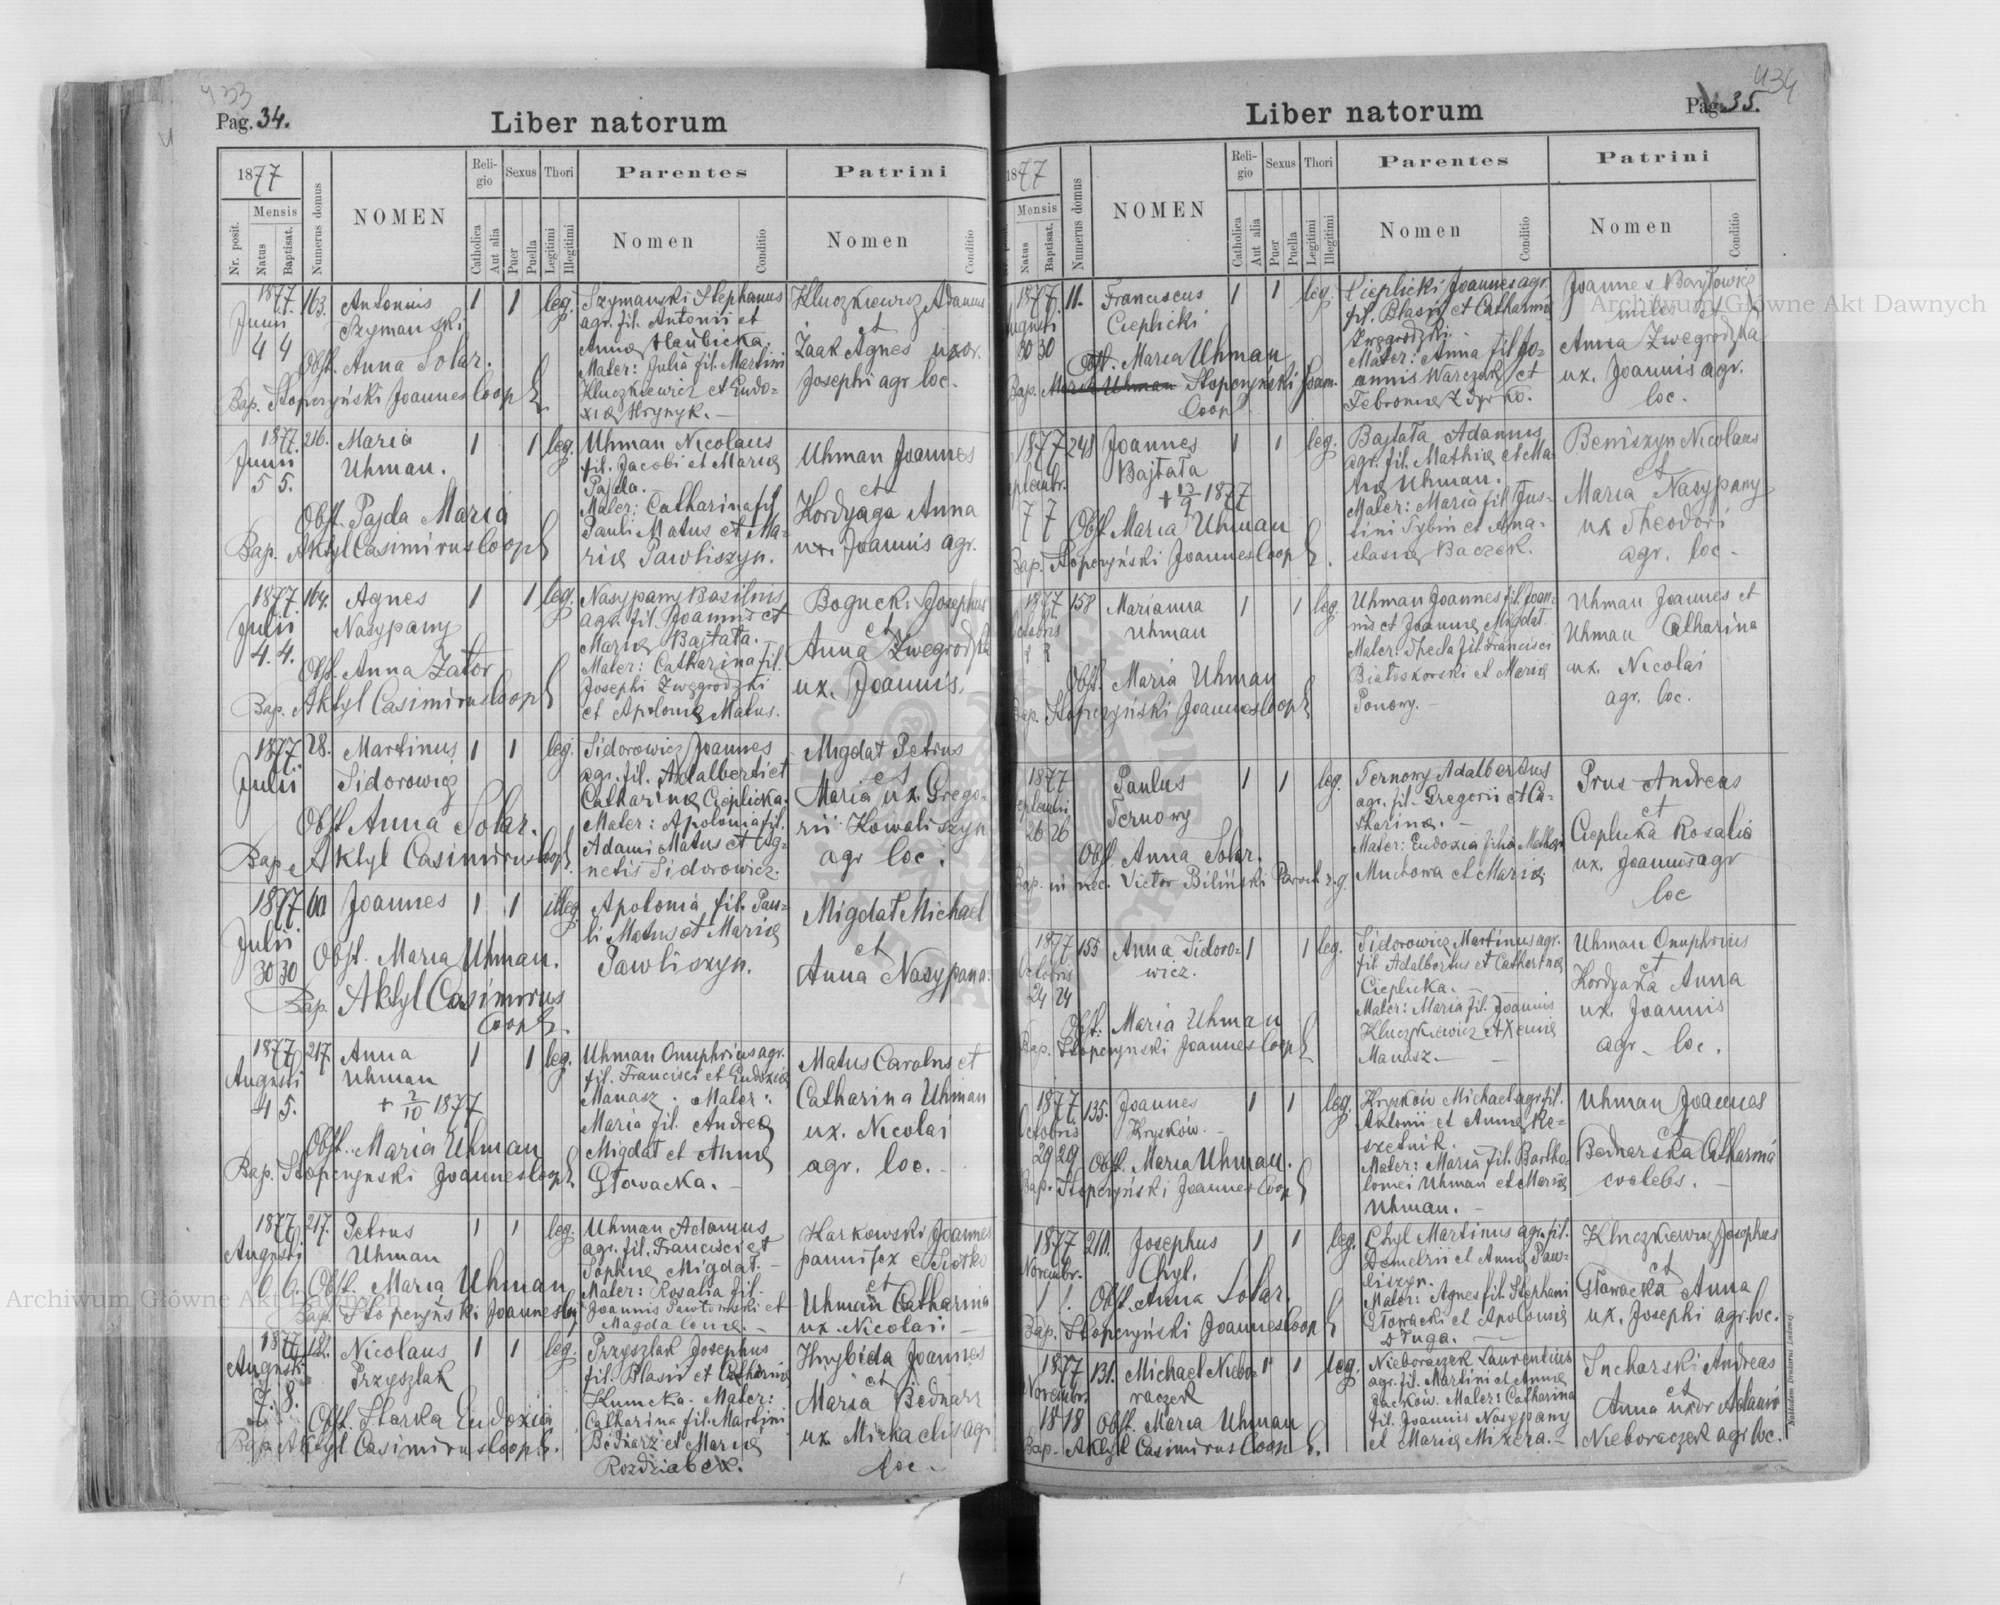 433
Pag. 34.
Liber natorum
1877
Mensis
Nr. posit.
Natus
Baptisat.
Numerus domus
NOMEN
Religio
Catholica
Aut alia
Sexus
Puer
Puella
Thori
Legitimi
Illegitimi
Parentes
Nomen
Conditio
Patrini
Nomen
Conditio
1877. 163. Antonius 1 1 leg. Szymański Stephanus Kluczkiewicz Adamus
Junii Szymański agr. fil. Antonii et et
4 4 Annæ Haubicka. Żaak Agnes uxor.
Obst. Anna Solar. Mater: Julia fil. Martini Josephi agr loc.
Bap. Stopczyński Joannes Coop Kluczkiewicz et Eudo-
xiæ Hrynyk. —
1877. 216. Maria 1 1 leg. Uhman Nicolaus Uhman Joannes
Junii Uhman. fil. Jacobi et Mariæ et
5 5. Pajda. — Kordyaga Anna
Obst. Pajda Maria Mater: Catharina fil. ux. Joannis agr.
Bap. Aktyl Casimirus Coop Pauli Matus et Ma-
riæ Pawliszyn.
1877. 164. Agnes 1 1 leg. Nasypany Basilius Bogucki Josephus
Julii Nasypany agr. fil. Joannis et et
4. 4. Mariæ Bajtała. Anna Zwegrodzka
Obst. Anna Zator Mater: Catharina fil. ux. Joannis.
Bap. Aktyl Casimirus Coop Josephi Zwegrodzki
et Apoloniæ Matus.
1877. 28. Martinus 1 1 leg. Sidorowicz Joannes Migdał Petrus
Julii Sidorowicz agr. fil. Adalberti et et
Catharinæ Cieplicka. Maria ux. Grego-
Obst. Anna Solar. Mater: Apolonia fil. rii Kowaliszyn
Bap. Aktyl Casimirus Coop. Adami Matus et Ag- agr loc.
netis Sidorowicz.
1877 60 Joannes 1 1 illeg Apolonia fil. Pau- Migdał Michael
Julii li Matus et Mariæ et
30 30 Obst. Maria Uhman. Pawliszyn. Anna Nasypana.
Bap. Aktyl Casimirus
Coop
1877 217. Anna 1 1 leg. Uhman Onuphrius agr. Matus Carolus et
Augusti Uhman fil. Francisci et Eudoxiæ Catharina Uhman
4 5. + 2/10 1877 Manasz. Mater: ux. Nicolai
Obst. Maria Uhman Maria fil. Andreæ agr. loc.
Bap. Stopczyński Joannes Coop Migdał et Annæ
Głowacka. —
1877 217. Petrus 1 1 leg. Uhman Adamus Karkowski Joannes
Augusti Uhman agr. fil. Francisci et pannifex
6 6. Obst. Maria Uhman Sophiæ Migdał. — et
Bap. Stopczyński Joannes Mater: Rosalia fil. Uhman Catharina
Joannis Pawłowski et ux. Nicolai —
Magdalenæ. —
1877 182. Nicolaus 1 1 leg. Przyszlak Josephus Hnybida Joannes
Augusti Przyszlak fil. Blasii et Catharinæ et
7. 8. Kumcka. Mater: Maria Bednarz
Obst. Starka Eudoxia Catharina fil. Martini ux. Michaelis agr
Bap. Aktyl Casimirus Coop. Bednarz et Mariæ loc —
Rozdziabek.
434
Pag. 35.
Liber natorum
1877
Mensis
Natus
Baptisat.
Numerus domus
NOMEN
Religio
Catholica
Aut alia
Sexus
Puer
Puella
Thori
Legitimi
Illegitimi
Parentes
Nomen
Conditio
Patrini
Nomen
Conditio
1877. 11. Franciscus 1 1 leg. Cieplicki Joannes agr. Joannes Baryłowicz
Augusti Cieplicki fil. Blasii et Catharinæ miles et
30 30 Zwegrodzki. Anna Zwegrodzka
Obst. Maria Uhman Mater: Anna fil. Jo- ux. Joannis agr.
Bap. Maria Uhman Stopczyński Joan. annis Warczak et loc.
Coop Febroniæ
1877 248 Joannes 1 1 leg. Bajtała Adamus Beniszyn Nicolaus
Septembr. Bajtała agr. fil. Mathiæ et Ma- et
7 7 1877 riæ Uhman. Maria Nasypany
Obst. Maria Uhman Mater: Maria fil. Jus- ux Theodori
Bap. Stopczyński Joannes Coop tini Sybin et Ana- agr. loc —
stasiæ Baczek.
1877 158 Marianna 1 1 leg. Uhman Joannes fil. Joan- Uhman Joannes et
Octobris Uhman nis et Joannæ Migdał. Uhman Catharina
Obst. Maria Uhman Mater: Thecla fil. Francisci ux. Nicolai
Bap. Stopczyński Joannes Coop Białoskorski et Mariæ agr. loc.
Ponowy. —
1877 Paulus 1 1 leg. Ternowy Adalbertus Prus Andreas
Septembri Ternowy agr. fil. Gregorii et Ca- et
26 26 tharinæ. — Cieplicka Rosalia
Obst. Anna Solar. Mater: Eudoxia filia Mathæi ux. Joannis agr
Bap. in nec. Victor Biliński Paroch r. g. Muchowa et Mariæ loc
1877 155 Anna Sidoro- 1 1 leg. Sidorowicz Martinus agr. Uhman Onuphrius
Octobris wicz. fil. Adalbertus et Catharinæ et
24 24 Cieplicka. — Kordyaka Anna
Obst. Maria Uhman Mater: Maria fil. Joannis ux. Joannis
Bap. Stopczyński Joannes Coop Kluczkiewicz et Xeniæ agr. loc.
Manasz. —
1877. 135. Joannes 1 1 leg. Hryskow Michael agr. fil. Uhman Joannes
Octobris Hrysków. — Antonii et Annæ Re- et
29 29 szetnik. Bednarska Catharina
Obst. Maria Uhman. Mater: Maria fil. Bartho- coelebs. —
Bap. Stopczyński Joannes Coop lomei Uhman et Mariæ
Uhman. —
1877 210. Josephus 1 1 leg. Chyl Martinus agr. fil. Kluczkiewicz Josephus
Novembr. Chyl. Demetrii et Annæ Paw- et
1 1. Obst. Anna Solar. liszyn. Głowacka Anna
Bap. Stopczyński Joannes Coop Mater: Agnes fil. Stephani ux. Josephi agr. loc.
Głowacki et Apoloniæ
Długa. —
1877 131. Michael Niebo- 1 1 leg. Nieboraczek Laurentius Sucharski Andreas
Novembr. raczek agr. fil. Martini et Annæ et
18 18 Obst. Maria Uhman Jacków. Mater: Catharina Anna uxor Adami
Bap. Aktyl Casimirus Coop fil. Joannis Nasypany Nieboraczek agr loc.
et Mariæ Mizera. —
Nakładem Drukarni Ludowej
Archiwum Główne Akt Dawnych
Archiwum Główne Akt Dawnych